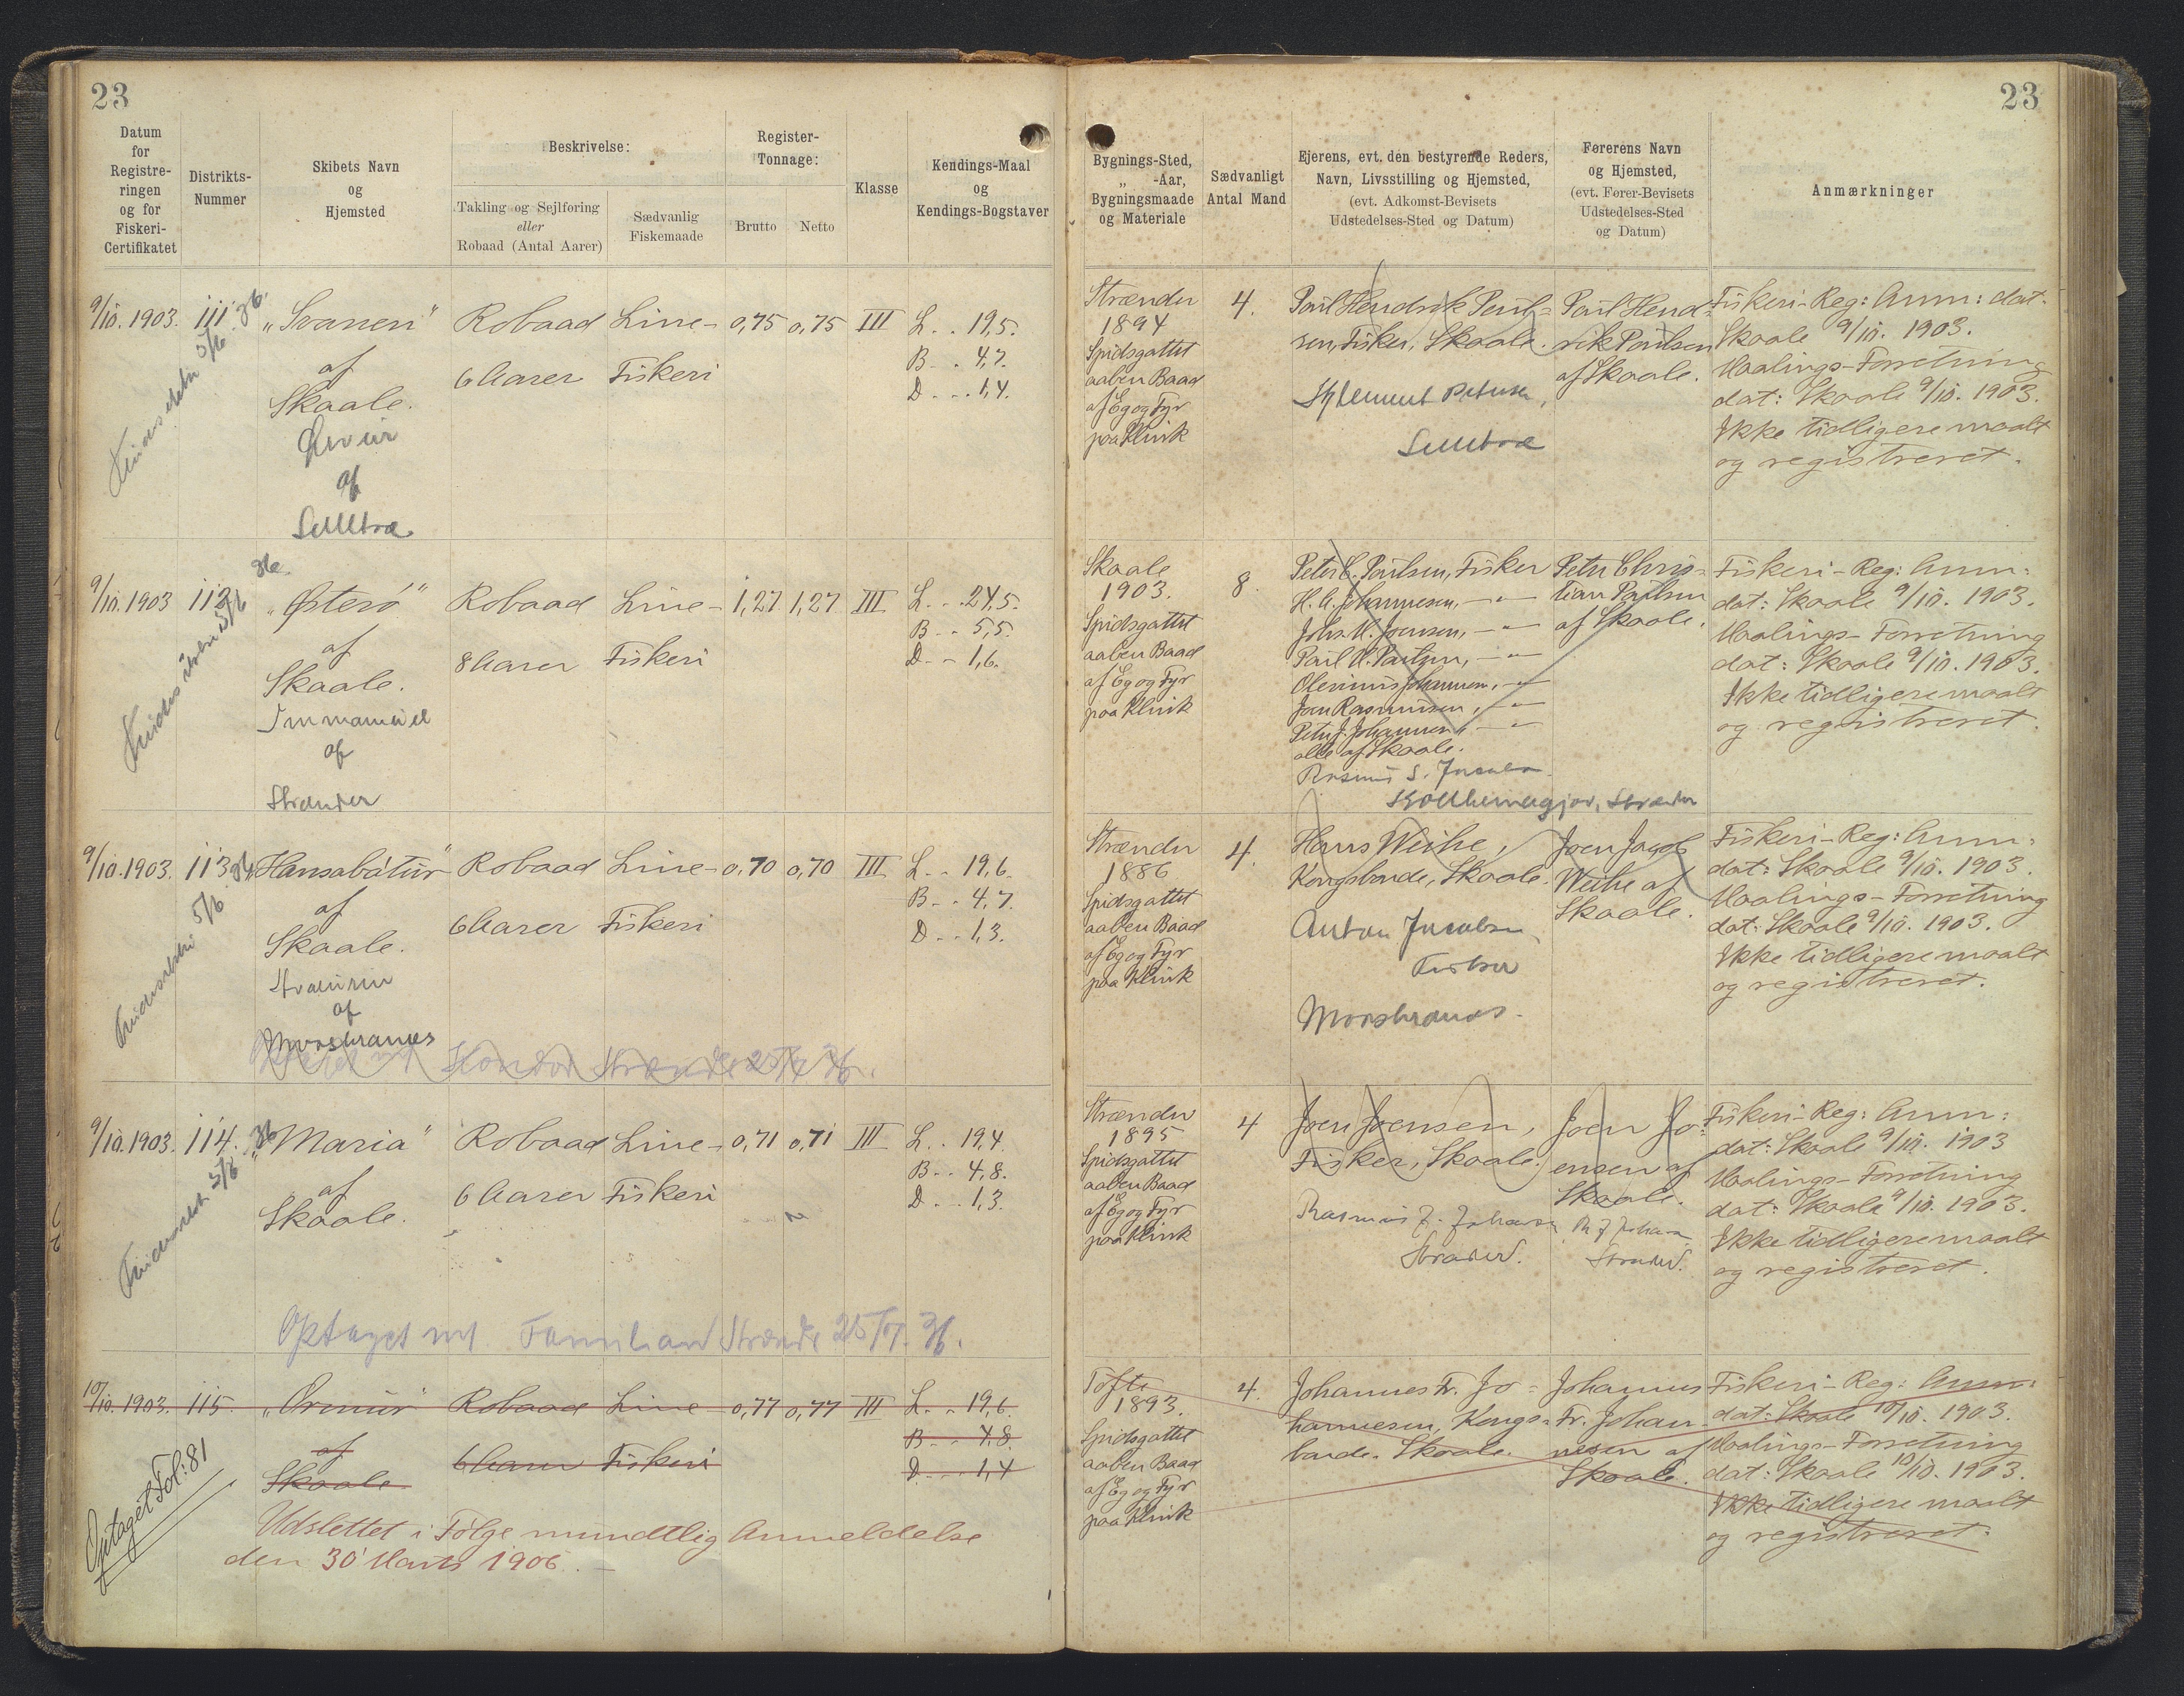 23
23
Datum
for
Registre-
ringen
og for
Fiskeri-
Certifikatet
Distrikts-
Nummer
Skibets Navn
og
Hjemsted
Beskrivelse:
Takling og Sejlføring
eller
Robaad (Antal Aarer)
Sædvanlig
Fiskemaade
Register-
Tonnage:
Brutto
Netto
Klasse
Kendings-Maal
og
Kendings-Bogstaver
Bygnings-Sted,
„ -Aar,
Bygningsmaade
og Materiale
Sædvanligt
Antal Mand
Ejerens, evt. den bestyrende Reders,
Navn, Livsstilling og Hjemsted,
(evt. Adkomst-Bevisets
Udstedelses-Sted og Datum)
Førerens Navn
og Hjemsted,
(evt. Fører-Bevisets
Udstedelses-Sted
og Datum)
Anmærkninger
9/10. 1903. 111.
5/6 36.
„Svanen"
af
Skaale.
af
Selletræ
Robaad
6 Aarer
Line-
Fiskeri
0,75 0,75 III
L. . 19,5.
B. . 4,7.
D. . . 1,4.
Strænder
1894
Spidsgattet
aaben Baad
af Eg og Fyr
paa Klink
4.
Poul Hendrik Poul-
sen, Fisker, Skaale.
Selletræ
Poul Hend-
rik Poulsen
af Skaale.
Fiskeri-Reg: Anm: dat:
Skaale 9/10. 1903.
Maalings-Forretning
dat: Skaale 9/10. 1903.
Ikke tidligere maalt
og registreret.
9/10. 1903 112.
5/6 36.
„Østerø"
af
Skaale.
Immanuel
af
Strænder
Robaad
8 Aarer
Line-
Fiskeri
1,27 1,27 III
L. . . 24,5.
B. . . 5,5.
D. . . 1,6.
Skaale
1903.
Spidsgattet
aaben Baad
af Eg og Fyr
paa Klink
8.
Peter C. Poulsen, Fisker
H. A. Johannesen, — " —
Johs. M. Joensen, — " —
Poul A. Poulsen, — " —
Olevinus Johannesen, — " —
Joen Rasmussen, — " —
Peter J. Johannesen, — " —
alle af Skaale.
Rasmus S. Jacobsen
Strænder
Peter Chris-
tian Poulsen
af Skaale.
Fiskeri-Reg: Anm:
dat: Skaale 9/10. 1903.
Maalings-Forretning
dat: Skaale 9/10. 1903.
Ikke tidligere maalt
og registreret.
9/10. 1903. 113.
5/6 36
„Hansabátur"
af
Skaale.
af
Morskranes
Robaad
6 Aarer
Line-
Fiskeri
0,70 0,70 III
L. . . 19,6.
B. . . 4,7.
D. . . 1,3.
Strænder
1886
Spidsgattet
aaben Baad
af Eg og Fyr
paa Klink
4.
Hans Weihe,
Kongsbonde, Skaale.
Anton Jacobsen,
Fisker
Morskranes.
Joen Jacob
Weihe af
Skaale.
Fiskeri-Reg: Anm:
dat: Skaale 9/10. 1903.
Maalings-Forretning
dat: Skaale 9/10. 1903.
Ikke tidligere maalt
og registreret.
9/10. 1903. 114.
5/6 36
„Maria"
af
Skaale.
Robaad
6 Aarer
Line-
Fiskeri
0,71 0,71 III
L. . 19,4.
B. . . 4,8.
D. . . 1,3.
Optaget
25/7. 36.
Strænder
1895
Spidsgattet
aaben Baad
af Eg og Fyr
paa Klink
4
Joen Joensen,
Fisker, Skaale.
Rasmus J. Johansen
Strænder.
Joen Jo-
ensen af
Skaale.
Strænder.
Fiskeri-Reg: Anm:
dat: Skaale 9/10. 1903
Maalings-Forretning
dat: Skaale 9/10. 1903.
Ikke tidligere maalt
og registreret.
10/10. 1903. 115.
„Ormur"
af
Skaale
Robaad
6 Aarer
Line
Fiskeri
0,77 0,77 III
L. . . 19,6.
B. . . 4,8.
D. . . . 1,4
Optaget Fol: 81
Udslettet i Følge mundtlig Anmeldelse
den 30' Marts 1906. —
Tofte
1893.
Spidsgattet
aaben Baad
af Eg og Fyr
paa Klink
4.
Johannes Fr. Jo-
hannesen, Kongs-
bonde. Skaale.
Johannes
Fr. Johan-
nesen af
Skaale.
Fiskeri-Reg: Anm:
dat: Skaale 10/10. 1903.
Maalings-Forretning
dat: Skaale 10/10. 1903.
Ikke tidligere maalt
og registreret.